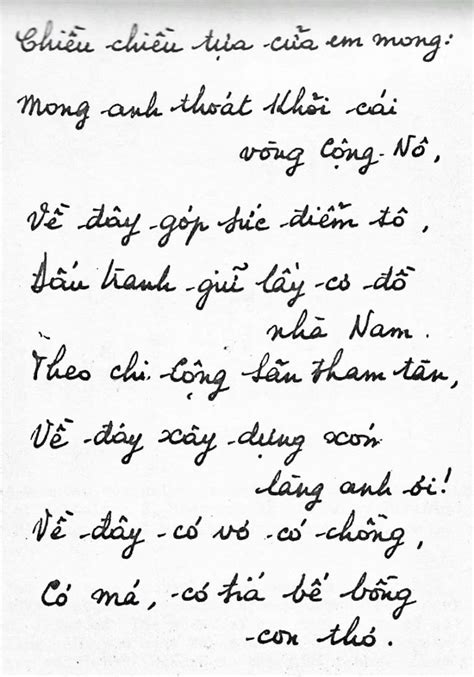 Chiều chiều tựa cửa em mong:
Mong anh thoát khỏi cái
vòng Cộng-Nô,
Về đây góp sức điểm tô,
Đấu tranh giữ lấy cơ đồ
nhà Nam.
Theo chi Cộng Sãn tham tàn,
Về đây xây dựng xóm
làng anh ơi!
Về đây có vợ có chồng,
Có má, có tiá bế bồng
con thơ.